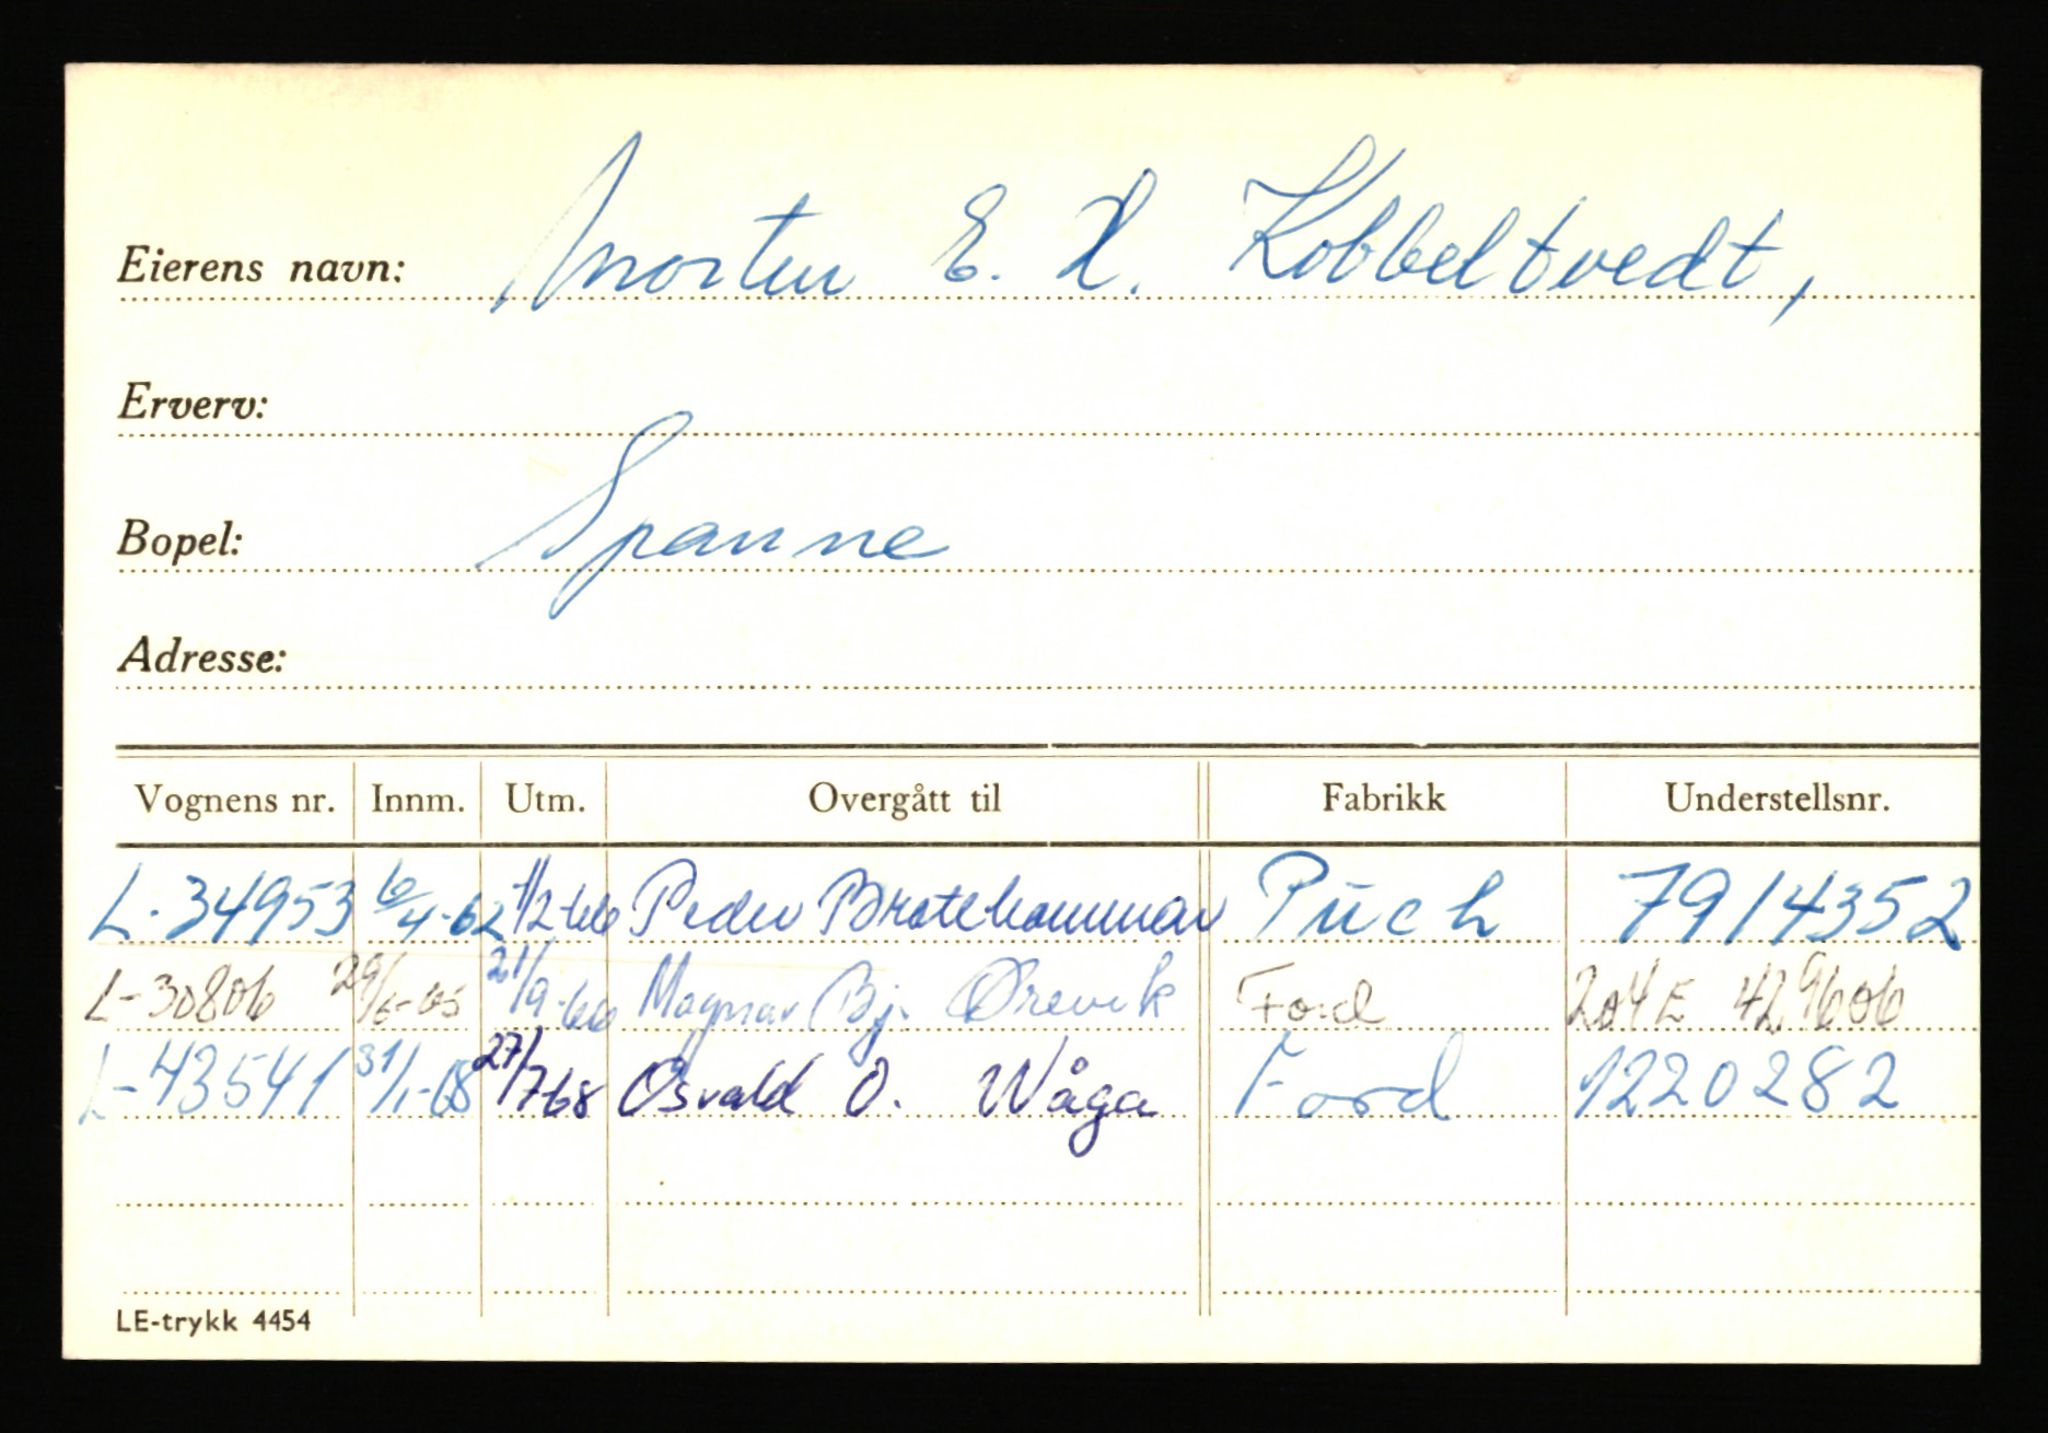 Eierens navn: Morten E. X. Kobbeltvedt,
Erverv:
Bopel: Spanne
Adresse:
Vognens nr. Innm. Utm. Overgått til Fabrikk Understellsnr.
L-34953 6/4-62 1/2-66 Peder Bratthammar Püch 7914352
L-30806 29/6-65 21/9-66 Magnar Bj. Ørevik Ford 204E 429606
L-43541 31/1-68 27/7 68 Osvald O. Wåga Ford 1220282
LE-trykk 4454